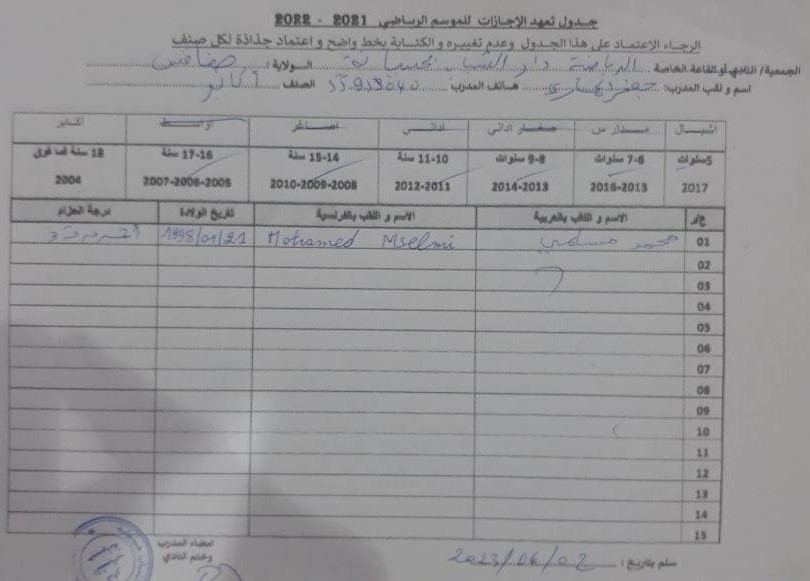 جدول تعهد الإجازات للموسم الرياضي 2021 - 2022
الرجاء الاعتماد على هذا الجدول وعدم تغييره و الكتابة بخط واضح و اعتماد جذاذة لكل صنف
الجمعية/ النادي أو القاعة الخاصة : الرياضة دار الشباب الولاية : صفاقس
اسم و لقب المدرب: جعفر هاتف المدرب: الصنف : أكابر
اشبال مدارس صغار اداني اداني اصاغر أواسط أكابر
5سنوات 7-6 سنوات 9-8 سنوات 11-10 سنة 15-14 سنة 17-16 سنة 18 سنة فما فوق
2017 2016-2015 2014-2013 2012-2011 2010-2009-2008 2007-2006-2005 2004
ع/ر الاسم و اللقب بالعربية الاسم و اللقب بالفرنسية تاريخ الولادة درجة الحزام
01 محمد مسلمي Mohamed Mselmi 1998/01/21
02
03
04
05
06
07
08
09
10
11
12
13
14
15
امضاء المدرب
وختم النادي
سلم بتاريخ : 2023/06/02